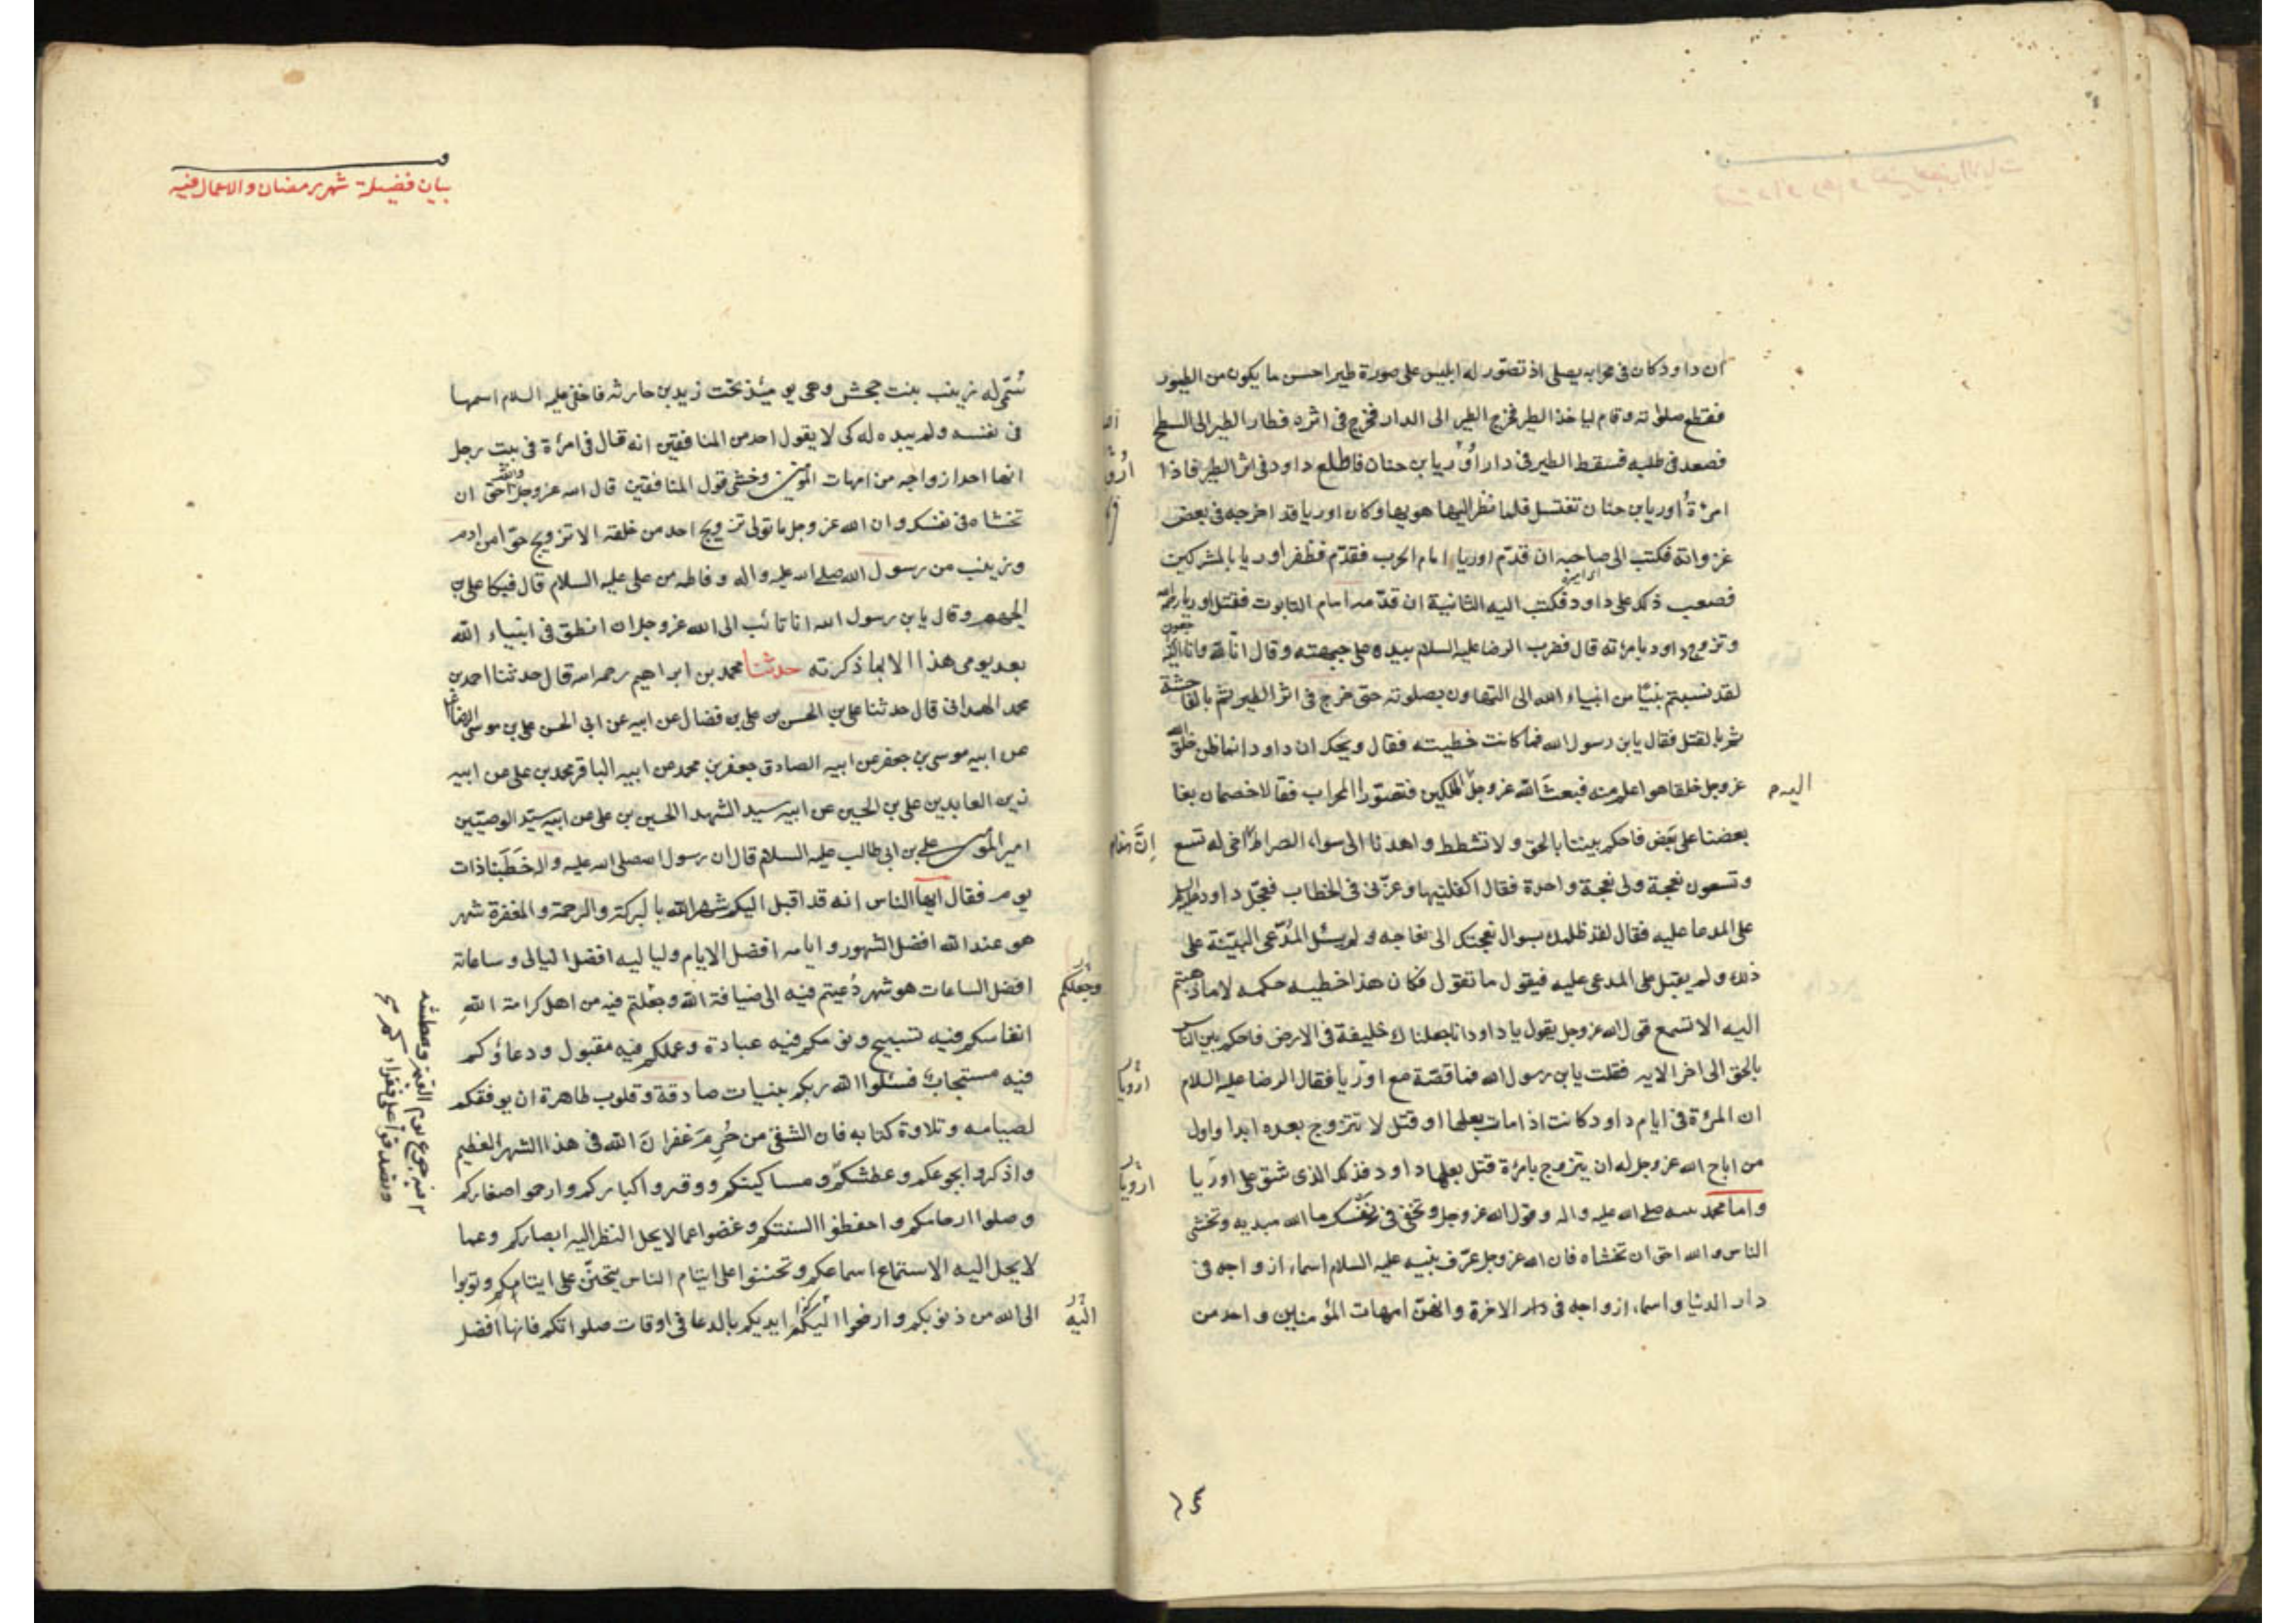 ان داود كان فى محرابه يصلى اذ تصور له ابليس على صورة طير احسن ما يكون من الطيور
فقطع صلوته وقام لياخذ الطير فخرج الطير الى الدار فخرج فى اثره فطار الطير الى السطح
فصعد فى طلبه فسقط الطير فى دار اوريا بن حنان فاطلع داود فى اثر الطير فاذا
امرءة اوريا بن حنان تغتسل فلما نظر اليها هويها وكان اوريا قد اخرجه فى بعض
غزواته فكتب الى صاحبه ان قدّم اوريا امام الحرب فقدّم فظفر اوريا بالمشركين
فصعب ذلك على داود فكتب اليه الثانية ان قدّمه امام التابوت فقتل اوريا رحمه الله
وتزوج داود بامرءته قال فضرب الرضا عليه السلام بيده على جبهته وقال انا لله وانا اليه راجعون
لقد نسبتم نبيّا من انبياء الله الى التهاون بصلوته حتى خرج فى اثر الطير ثم بالفاحشة
ثم بالقتل فقال يابن رسول الله فما كانت خطيته فقال ويحك ان داود انما ظن ان ما خلق الله
عز وجل خلقا هو اعلم منه فبعث الله عز وجل الملكين فتصورا المحراب فقالا خصمان بغا
اليه م
بعضنا على بعض فاحكم بيننا بالحق ولا تشطط واهدنا الى سواء الصراط اخى له تسع
إنَّ هذا م
وتسعون نعجة ولى نعجة واحدة فقال اكفلنيها وعزّنى فى الخطاب فعجّل داود عليه السلام
على المدعا عليه فقال لقد ظلمك بسوال نعجتك الى نعاجه ولم يسئل المدّعى البيّنة على
ذلك ولم يقبل على المدعى عليه فيقول ما تقول فكان هذا خطيه حكمه لا ما ذهبتم
اليه الا تسمع قول الله عز وجل يقول يا داود انا جعلناك خليفة فى الارض فاحكم بين الناس
بالحق الى اخر الايه فقلت يابن رسول الله فما قصّة مع اوريا فقال الرضا عليه السلام
ارويا
ان المرءة فى ايام داود كانت اذا مات بعلها او قتل لا تتزوج بعده ابدا واول
من اباح الله عز وجل له ان يتزوج بامرءة قتل بعلها داود فذلك الذى شق على اوريا
ارويا
واما محمد نبيه صلى الله عليه واله وقول الله عز وجل وتخفى فى نفسك ما الله مبديه وتخشى
الناس والله احق ان تخشاه فان الله عز وجل عرّف نبيه عليه السلام اسماء ازواجه فى
دار الدنيا واسماء ازواجه فى دار الاخرة وانهنّ امهات المؤمنين واحد من
بيان فضيلة شهر رمضان والاعمال فيه
سُمّى له زينب بنت جحش وهى يومئذ تحت زيد بن حارثه فاخفى عليه السلام اسمها
فى نفسه ولم يبده له كى لا يقول احد من المنافقين انه قال فى امرءة فى بيت رجل
انها احد ازواجه من امهات المؤمنين وخشى قول المنافقين قال الله عز وجل والله احق ان
تخشاه فى نفسك وان الله عز وجل ما تولى تزويج احد من خلقه الا تزويج حوّا من ادم
وزينب من رسول الله صلى الله عليه واله وفاطمه من على عليه السلام قال فبكا على بن
الجهم وقال يابن رسول الله انا تائب الى الله عز وجل ان انطق فى انبياء الله
بعد يومى هذا الا بما ذكرته حدثنا محمد بن ابراهيم رحمه الله قال حدثنا احمد بن
محمد الهمدانى قال حدثنا على بن الحسن بن على بن فضال عن ابيه عن ابى الحسن على بن موسى الرضا
عن ابيه موسى بن جعفر عن ابيه الصادق جعفر بن محمد عن ابيه الباقر محمد بن على عن ابيه
زين العابدين على بن الحسين عن ابيه سيد الشهدا الحسين بن على عن ابيه سيّد الوصيّين
امير المؤمنين على بن ابى طالب عليه السلام قال ان رسول الله صلى الله عليه واله خَطَبَنا ذات
يوم فقال ايها الناس انه قد اقبل اليكم شهر الله بالبركة والرحمة والمغفرة شهر
هو عند الله افضل الشهور وايامه افضل الايام ولياليه افضل اليالى وساعاته
افضل الساعات هو شهر دُعيتم فيه الى ضيافة الله وجعلتم فيه من اهل كرامة الله
وجعلكم
انفاسكم فيه تسبيح ونومكم فيه عبادة وعملكم فيه مقبول ودعاؤكم
فيه مستجاب فسئلوا الله ربكم بنيات صادقة وقلوب طاهرة ان يوفقكم
لصيامه وتلاوة كتابه فان الشقى من حُرِمَ غفران الله فى هذا الشهر العظيم
واذكروا بجوعكم وعطشكم ومساكينكم ووقروا كباركم وارحموا صغاركم
فيه جوع يوم القيمة وعطشه
وتصدقوا على فقراءكم
وصلوا ارحامكم واحفظوا السنتكم وغضوا عما لا يحل النظر اليه ابصاركم وعما
لا يحل اليه الاستماع اسماعكم وتحننوا على ايتام الناس يتحنّن على ايتامكم وتوبوا
الى الله من ذنوبكم وارفعوا اليكم ايديكم بالدعا فى اوقات صلواتكم فانها افضل
اليه